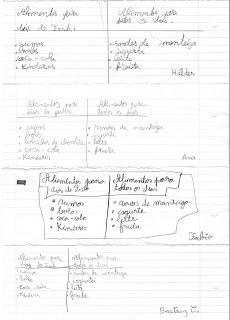 Alimentos para
dias de festa
Alimentos para
todos os dias
• sumos
• bolos
• coca-cola
• Kinderes
• sandes de manteiga
• iogurte
• leite
• fruta
Hélder
Alimentos para
dias de festa
Alimentos para
todos os dias
• sumos
• bolos
• bolachas de chocolate
• coca-cola
• Kinderes
• sandes de manteiga
• iogurte
• leite
• fruta
Ana
Alimentos para
dias de festa
Alimentos para
todos os dias
• sumos
• bolos
• coca-cola
• Kinderes
• sandes de manteiga
• iogurte
• leite
• fruta
Fábio
Alimentos para
dias de festa
Alimentos para
todos os dias
• sumos
• bolos
• coca-cola
• sandes de manteiga
• iogurte
• leite
• fruta
Beatriz